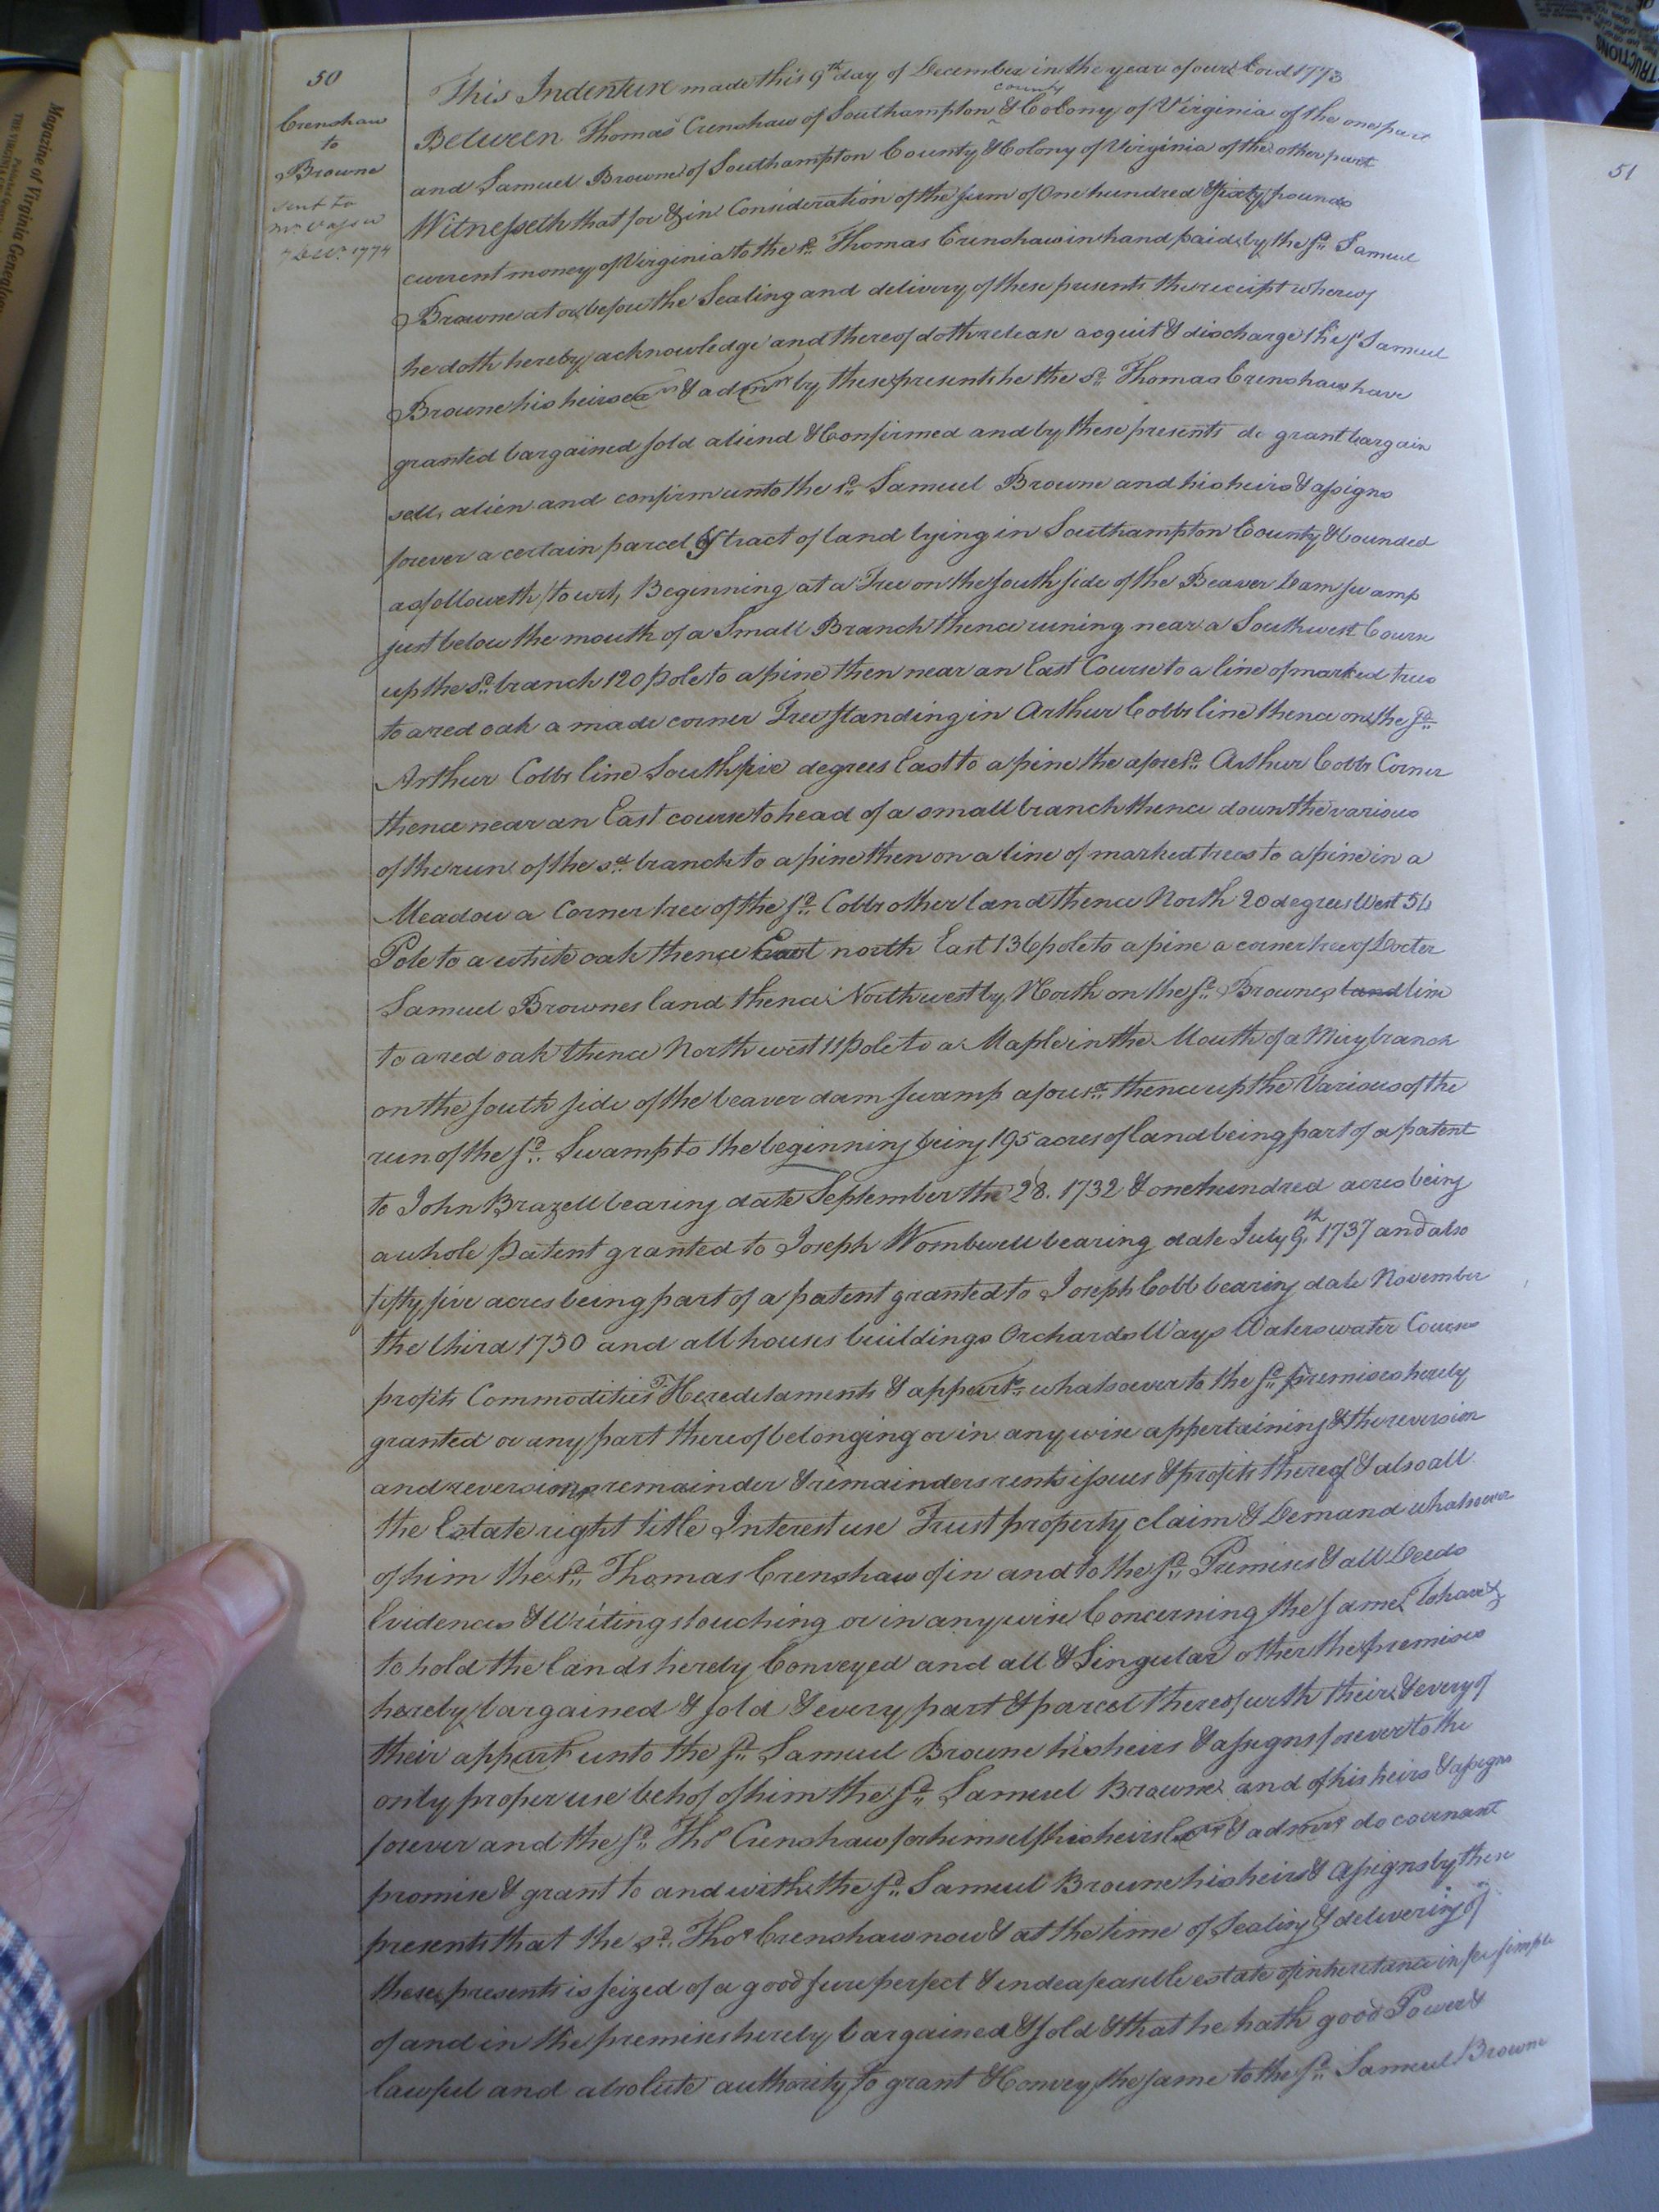 50
Crenshaw
to
Browne
sent to
7 Decr. 1774
This Indenture made this 9th day of December in the year of our Lord 1773
Between Thomas Crenshaw of Southampton county & Colony of Virginia of the one part
and Samuel Browne of Southampton County & Colony of Virginia of the other part
Witnesseth that for & in Consideration of the sum of One hundred & sixty pounds
current money of Virginia to the sd. Thomas Crenshaw in hand paid by the sd. Samuel
Browne at or before the Sealing and delivery of these presents the receipt whereof
he doth hereby acknowledge and thereof doth release acquit & discharge the sd Samuel
Browne his heirs exrs & admrs by these presents he the sd. Thomas Crenshaw have
granted bargained sold aliend & Confirmed and by these presents do grant bargain
sell, alien and confirm unto the sd. Samuel Browne and his heirs & assigns
forever a certain parcel of tract of land lying in Southampton County & bounded
as followeth, to wit, Beginning at a Tree on the south side of the Beaver Dam swamp
just below the mouth of a Small Branch thence runing near a Southwest Course
up the sd. branch 120 pole to a pine then near an East Course to a line of marked trees
to a red oak a made corner Tree standing in Arthur Cobbs line thence on the sd.
Arthur Cobbs line South five degrees East to a pine the aforesd. Arthur Cobbs Corner
thence near an East course to head of a small branch thence down the various
of the run of the sd. branch to a pine then on a line of marked trees to a pine in a
Meadow a Corner tree of the sd. Cobbs other land thence North 20 degrees West 56
Pole to a white oak thence East north East 136 pole to a pine a corner tree of Docter
Samuel Brownes land thence North west by North on the sd. Brownes land line
to a red oak thence North west 11 pole to a Maple in the Mouth of a Miry branch
on the south side of the beaver dam swamp aforesd. thence up the Various of the
run of the sd. Swamp to the beginning being 195 acres of land being part of a patent
to John Brazell bearing date September the 28. 1732 & one hundred acres being
a whole Patent granted to Joseph Wombwell bearing date July 9th. 1737 and also
fifty five acres being part of a patent granted to Joseph Cobb bearing date November
the third 1750 and all houses buildings Orchards Ways Waters water Courses
profits Commodities Heredetaments & appurts. whatsoever to the sd. premises hereby
granted or any part thereof belonging or in any wise appertaining & the reversion
and reversions remainder & remainders rents issues & profits thereof & also all
the Estate right title Interest use Trust property claim & Demand whatsoever
of him the sd. Thomas Crenshaw of in and to the sd. Premises & all Deeds
Evidences & Writings touching or in any wise Concerning the same To have &
to hold the lands hereby Conveyed and all & Singular other the premises
hereby bargained & sold & every part & parcel thereof with their & every of
their appurts unto the sd. Samuel Browne his heirs & assigns forever to the
only proper use behof of him the sd. Samuel Browne and of his heirs & assigns
forever and the sd. Thos Crenshaw for himself his heirs Exrs & admrs do covenant
promise & grant to and with the sd. Samuel Browne his heirs & assigns by these
presents that the sd. Thos Crenshaw now & at the time of Sealing & delivering of
these presents is seized of a good sure perfect & indeafeasible estate of inheritance in fee simple
of and in the premises hereby bargained & sold & that he hath good Power &
lawful and absolute authority to grant & Convey the same to the sd. Samuel Browne
51
Magazine of Virginia Genealogy